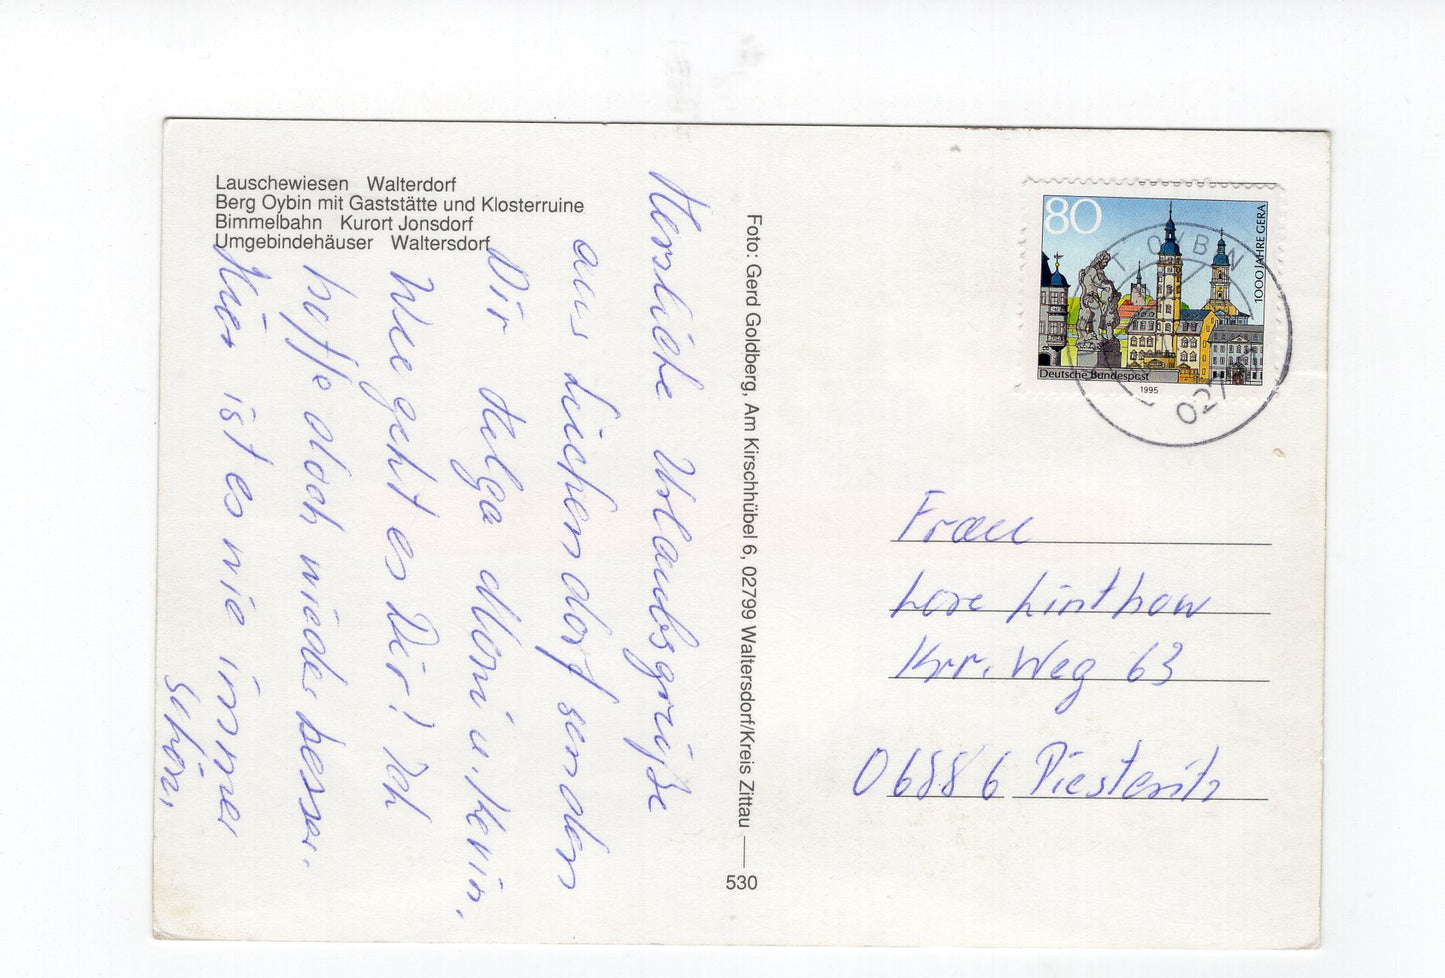 Lauschewiesen Walterdorf
Berg Oybin mit Gaststätte und Klosterruine
Bimmelbahn Kurort Jonsdorf
Umgebindehäuser Waltersdorf
Herzliche Urlaubsgrüße
aus Lückendorf senden
Dir Helga Moni u. Kevin.
Wie geht es Dir? Ich
hoffe doch wieder besser.
Hier ist es wie immer
schön.
Foto: Gerd Goldberg, Am Kirschhübel 6, 02799 Waltersdorf/Kreis Zittau
530
80
1000 JAHRE GERA
Deutsche Bundespost
1995
OYBIN
027
Frau
Lore Linthow
Krr. Weg 63
06886 Piesteritz